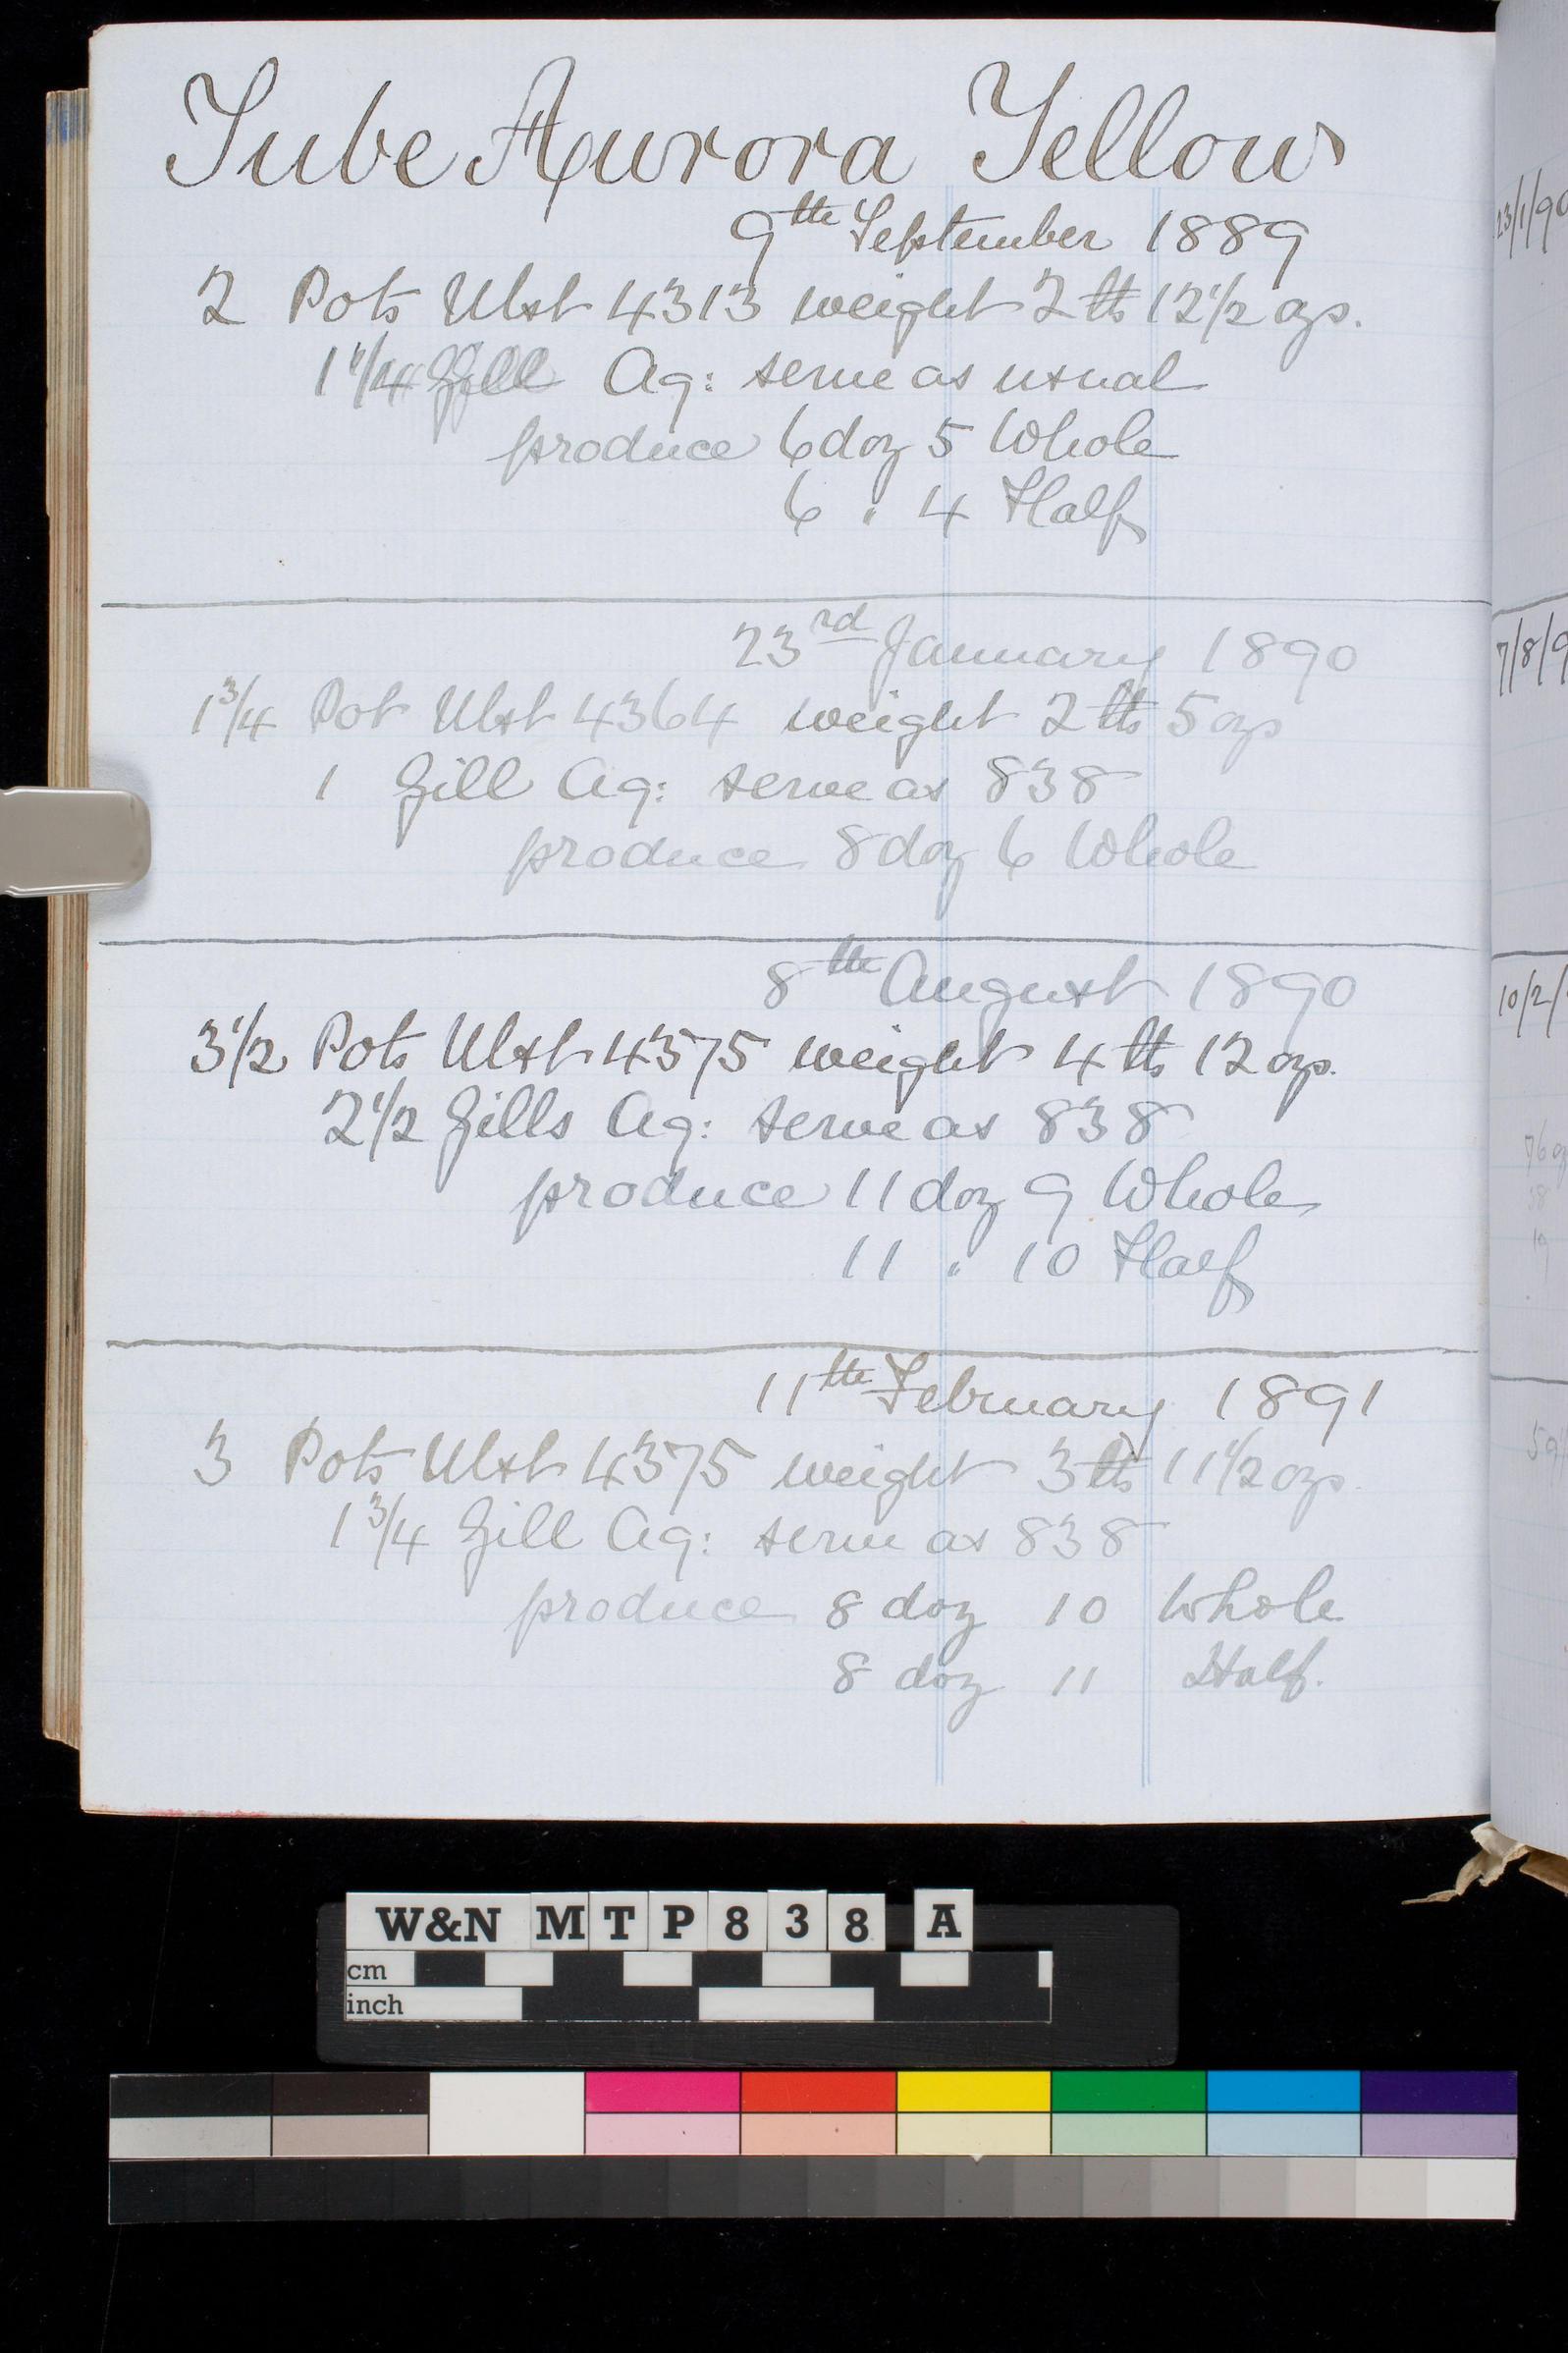 Tube Aurora Yellow
9th September 1889
2 Pots Ulst 4313 weight 2 lbs 12 1/2 ozs.
1 1/4 Gill Aq: serve as usual
produce 6 doz 5 Whole
6 " 4 Half
23rd January 1890
1 3/4 Pot Ulst 4364 weight 2 lbs 5 ozs
1 Gill Aq: serve as 838
produce 8 doz 6 Whole
8th August 1890
3 1/2 Pots Ulst 4375 weight 4 lbs 12 ozs.
2 1/2 Gills Aq: serve as 838
produce 11 doz 9 Whole
11 " 10 Half
11th February 1891
3 Pots Ulst 4375 weight 3 lbs 11 1/2 ozs.
1 3/4 Gill Aq: serve as 838
produce 8 doz 10 Whole
8 doz 11 Half.
23/1/90
7/8/9
10/2/
W&N MTP838 A
cm
inch